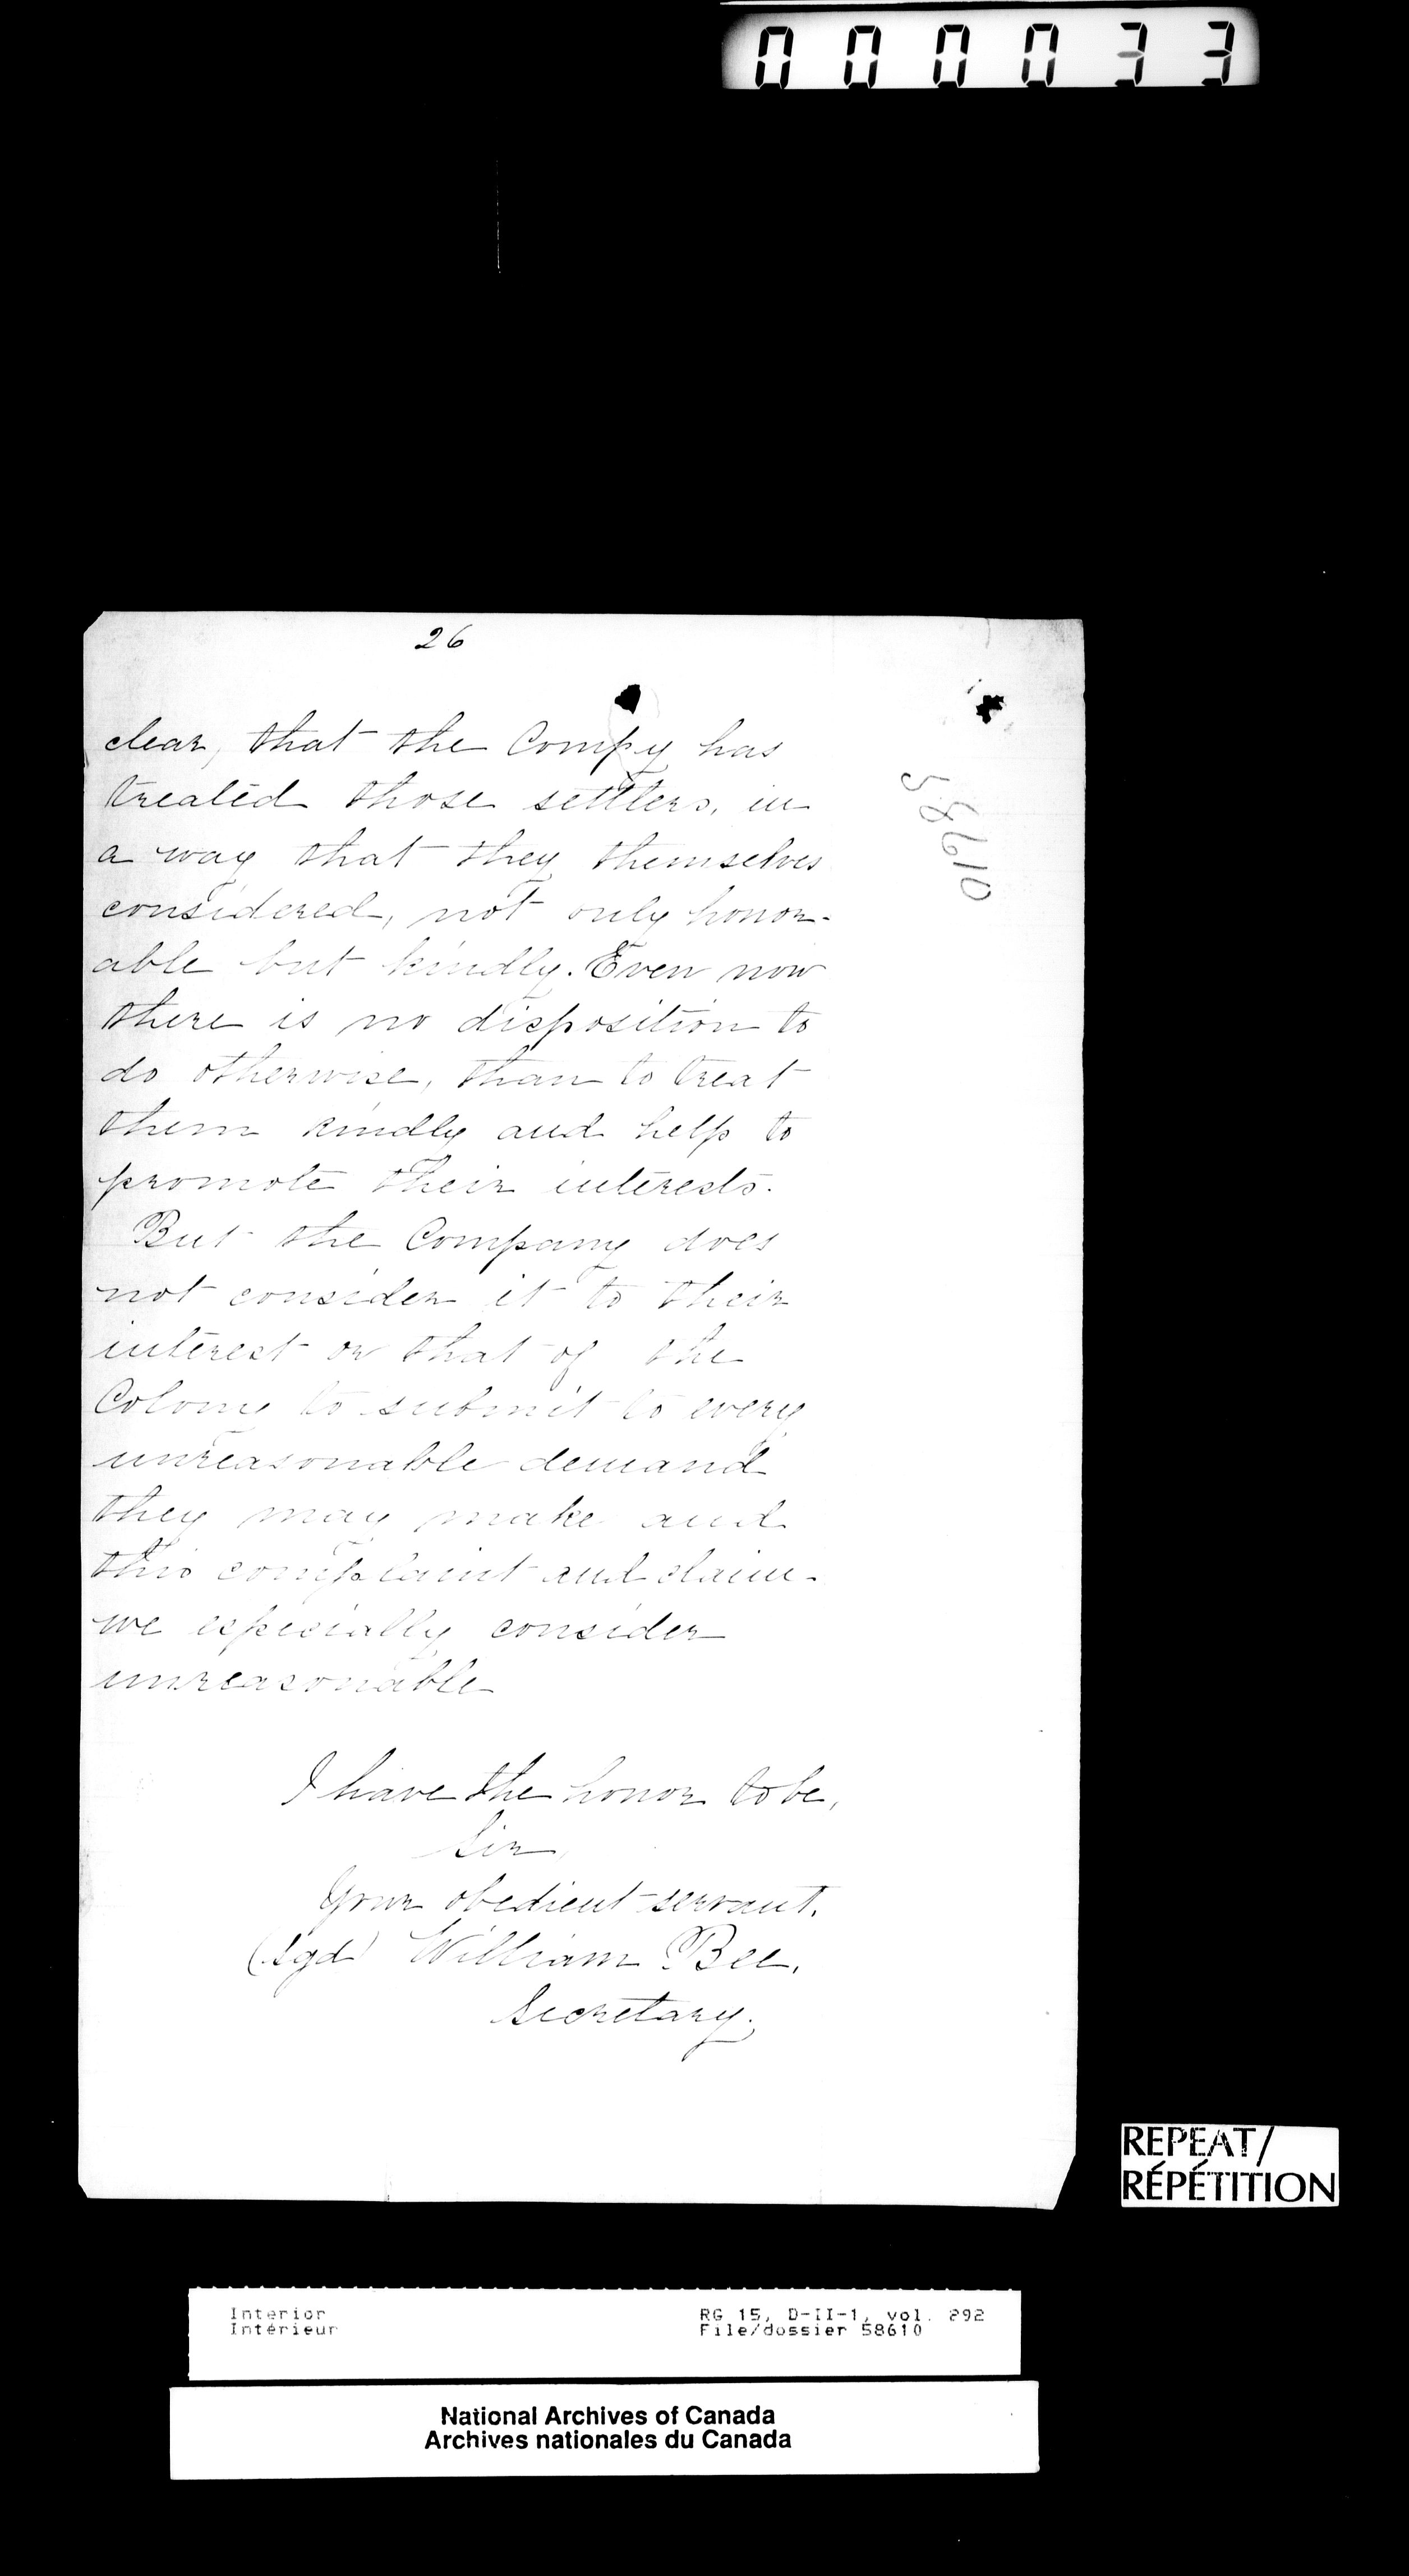 000033
26
clear, that the Compy has
treated those settlers, in
a way that they themselves
considered, not only honor-
able but kindly. Even now
there is no disposition to
do otherwise, than to treat
them kindly and help to
promote their interests.
But the Company does
not consider it to their
interest or that of the
Colony to submit to every
unreasonable demand
they may make and
this complaint and claim
we especially consider
unreasonable
I have the honor to be,
Sir,
Your obedient servant,
(Sgd) William Bee,
Secretary.
58610
REPEAT/
RÉPÉTITION
Interior
Intérieur
RG 15, D-II-1, vol. 292
File/dossier 58610
National Archives of Canada
Archives nationales du Canada